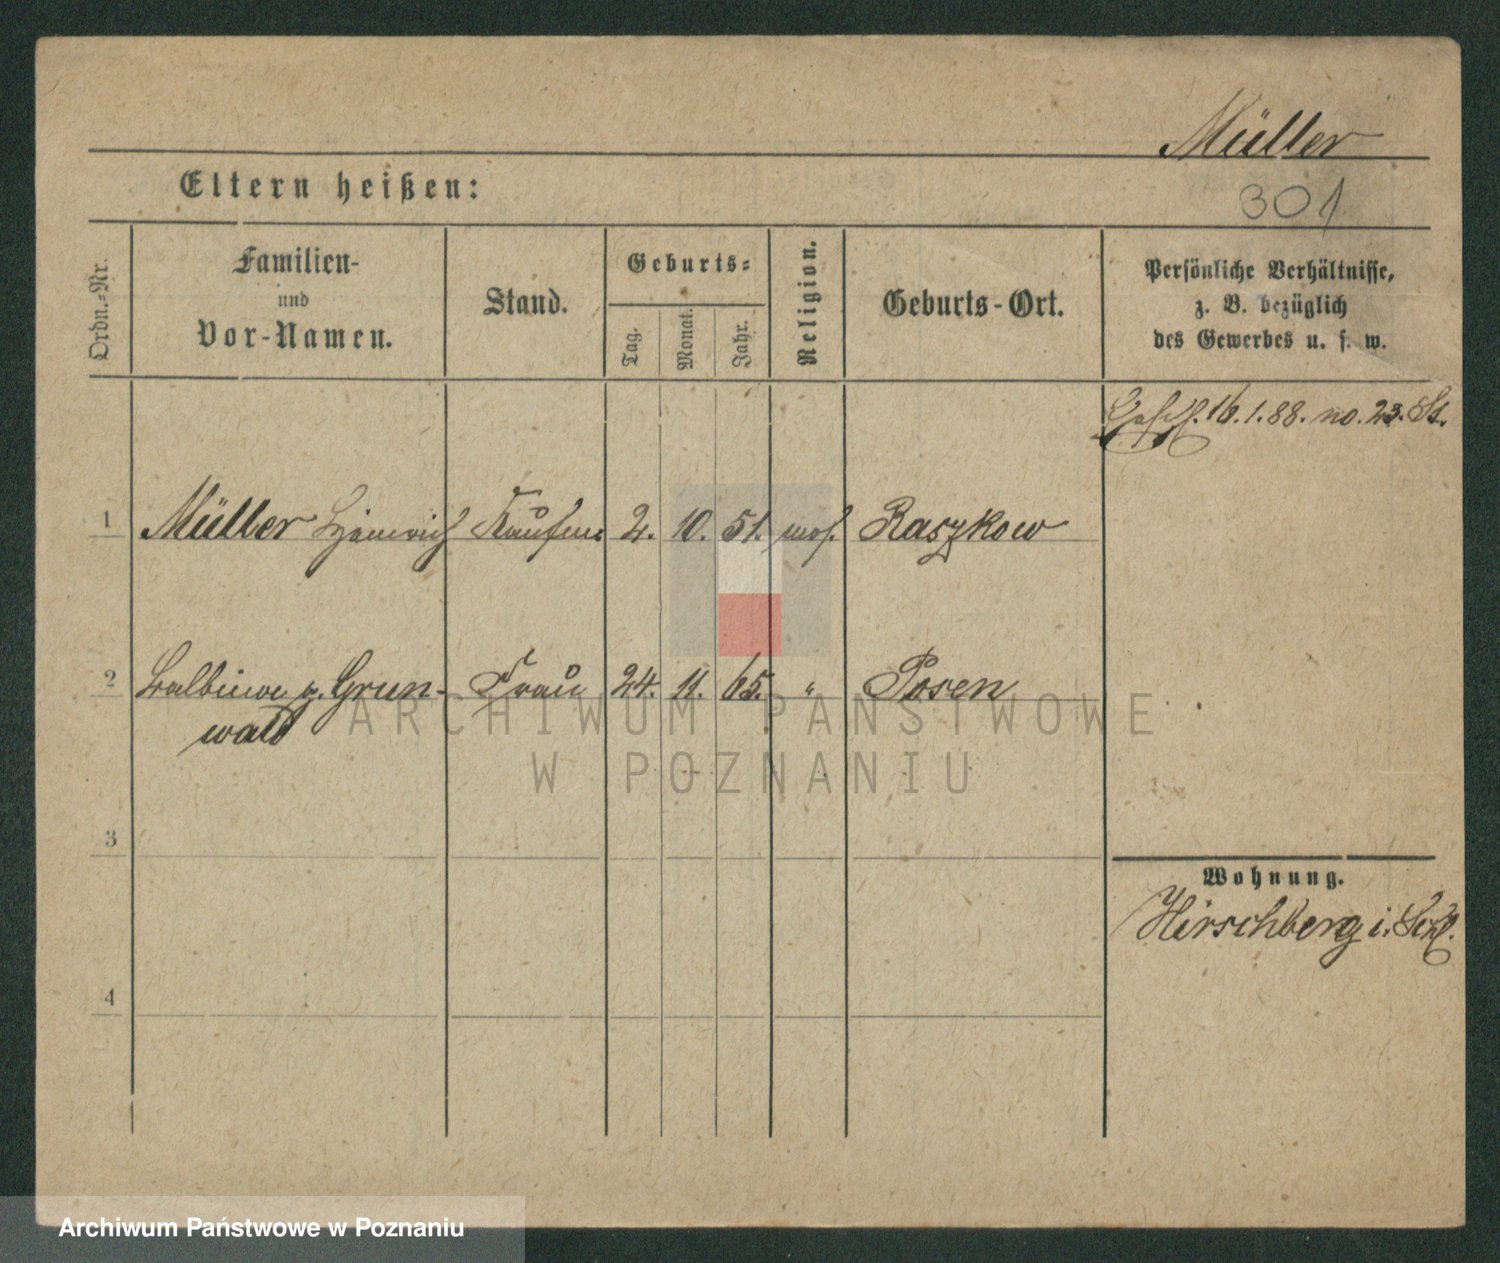 Müller
Eltern heißen:
301
Ordn.=Nr.
Familien-
und
Vor-Namen.
Stand.
Geburts=
Tag.
Monat.
Jahr.
Religion.
Geburts-Ort.
Persönliche Verhältnisse,
z. B. bezüglich
des Gewerbes u. s. w.
16.1.88. no. 23. St.
1 Müller Heinrich Kaufm. 2. 10. 51. mos. Raszkow
2 Balbine g. Grun- Frau 24. 11. 65. " Posen
wald
ARCHIWUM PAŃSTWOWE
W POZNANIU
3
Wohnung.
Hirschberg i. Schl.
4
Archiwum Państwowe w Poznaniu